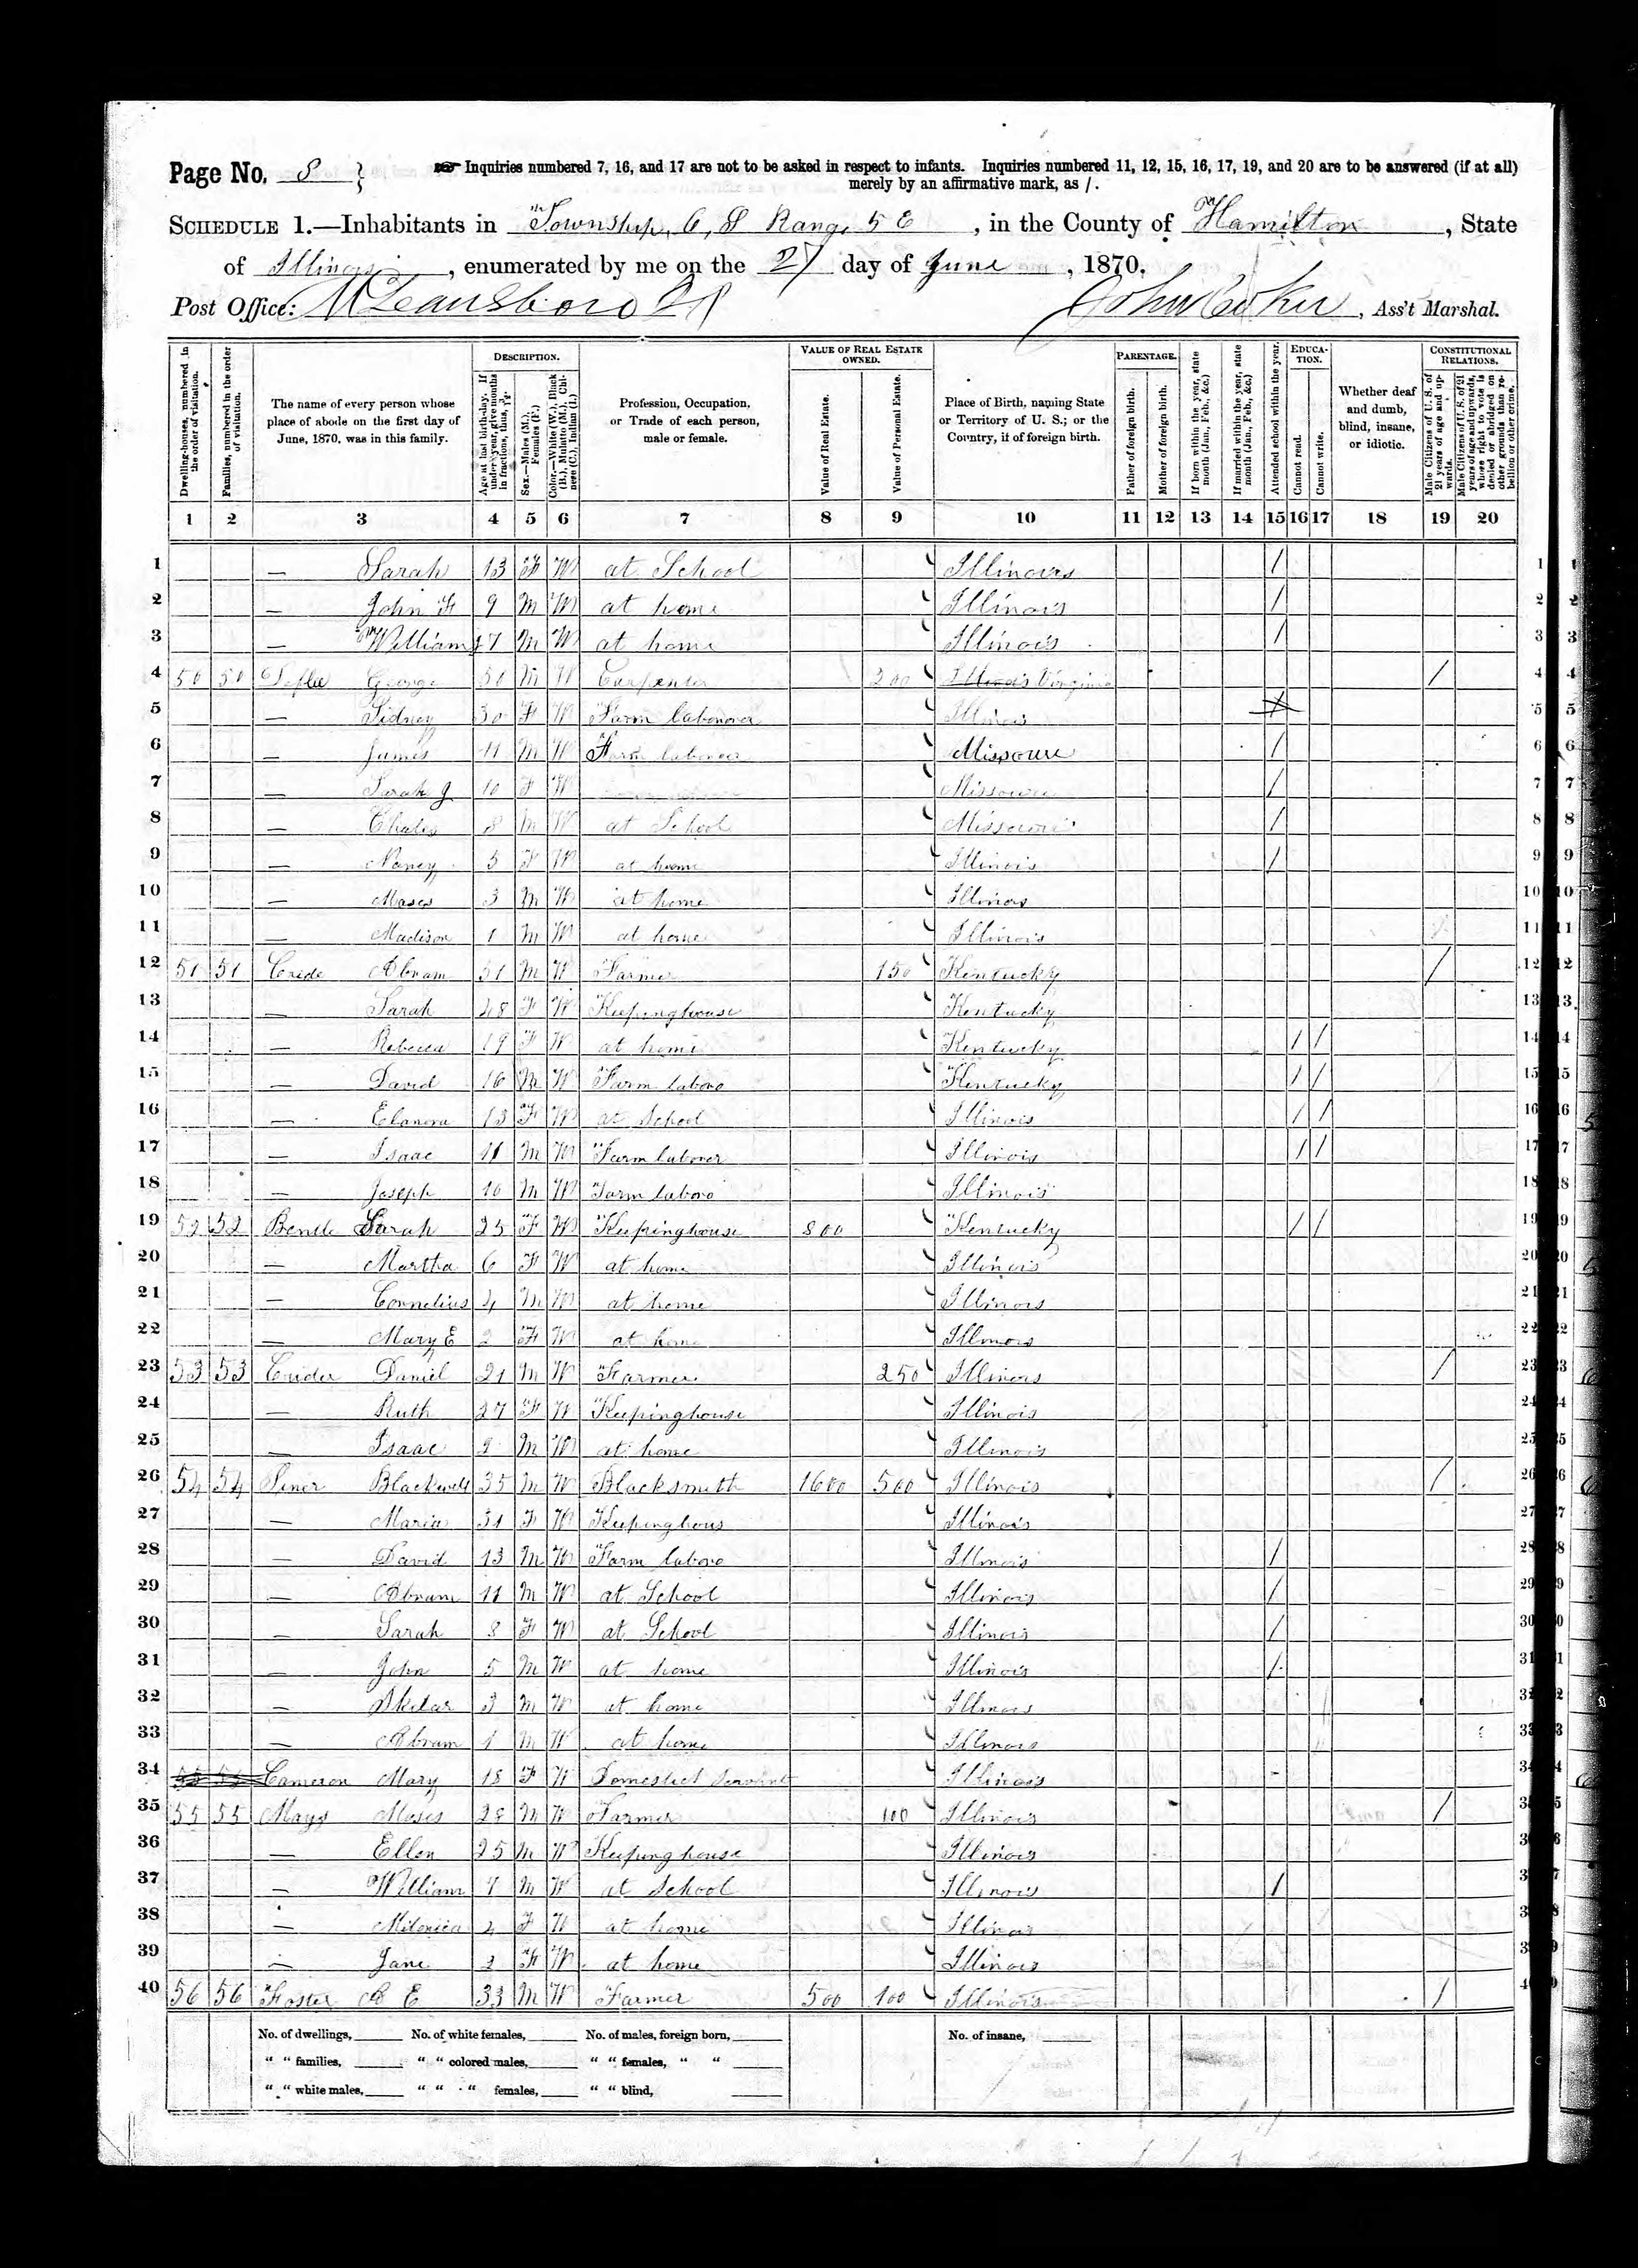 Page No. 8
Inquiries numbered 7, 16, and 17 are not to be asked in respect to infants. Inquiries numbered 11, 12, 15, 16, 17, 19, and 20 are to be answered (if at all)
merely by an affirmative mark, as /.
SCHEDULE 1.—Inhabitants in Township, 6, S Range 5 E, in the County of Hamilton, State
of Illinois, enumerated by me on the 27 day of June, 1870.
Post Office: McLeansboro , Ass't Marshal.
Dwelling-houses, numbered in the order of visitation.
Families, numbered in the order of visitation.
The name of every person whose place of abode on the first day of June, 1870, was in this family.
DESCRIPTION.
Age at last birth-day. If under 1 year, give months in fractions, thus, 3/12.
Sex.—Males (M.), Females (F.)
Color.—White (W.), Black (B.), Mulatto (M.), Chinese (C.), Indian (I.)
Profession, Occupation, or Trade of each person, male or female.
VALUE OF REAL ESTATE OWNED.
Value of Real Estate.
Value of Personal Estate.
Place of Birth, naming State or Territory of U. S.; or the Country, if of foreign birth.
PARENTAGE.
Father of foreign birth.
Mother of foreign birth.
If born within the year, state month (Jan., Feb., &c.)
If married within the year, state month (Jan., Feb., &c.)
Attended school within the year.
EDUCATION.
Cannot read.
Cannot write.
Whether deaf and dumb, blind, insane, or idiotic.
CONSTITUTIONAL RELATIONS.
Male Citizens of U. S. of 21 years of age and upwards.
Male Citizens of U. S. of 21 years of age and upwards, whose right to vote is denied or abridged on other grounds than rebellion or other crime.
1 2 3 4 5 6 7 8 9 10 11 12 13 14 15 16 17 18 19 20
1 — Sarah 13 F W at School Illinois / 1
2 — John F 9 M W at home Illinois / 2
3 — William 7 M W at home Illinois / 3
4 50 50 George M W Carpenter 200 Illinois Virginia / 4
5 — Sidney 30 F W Farm Illinois 5
6 — James 11 M W Farm laborer Missouri / 6
7 — Sarah J 10 F W Missouri / 7
8 — Chales 8 M W at School Missouri / 8
9 — Nancy 5 F W at home Illinois / 9
10 — Moses 3 M W at home Illinois 10
11 — Madison 1 M W at home Illinois 11
12 51 51 Abram 51 M W Farmer 150 Kentucky / 12
13 — Sarah 48 F W Keepinghouse Kentucky 13
14 — Rebecca 19 F W at home Kentucky / / 14
15 — David 16 M W Farm labore Kentucky / / 15
16 — Elanora 13 F W at School Illinois / / 16
17 — Isaac 11 M W Farm laborer Illinois / / 17
18 — Joseph 10 M W Farm labore Illinois 18
19 52 52 Sarah 25 F W Keepinghouse 800 Kentucky / / 19
20 — Martha 6 F W at home Illinois 20
21 — Cornelius 4 M W at home Illinois 21
22 — Mary E 2 F W at home Illinois 22
23 53 53 Crider Daniel 21 M W Farmer 250 Illinois / 23
24 — Ruth 27 F W Keepinghouse Illinois 24
25 — Isaac 2 M W at home Illinois 25
26 54 54 Blackwell 35 M W Blacksmith 1600 500 Illinois / 26
27 — Maria 31 F W Keepinghous Illinois 27
28 — David 13 M W Farm labore Illinois / 28
29 — Abram 11 M W at School Illinois / 29
30 — Sarah 8 F W at School Illinois / 30
31 — John 5 M W at home Illinois / 31
32 — 3 M W at home Illinois 32
33 — Abram 1 M W at home Illinois 33
34 Cameron Mary 18 F W Domestict Servant Illinois 34
35 55 55 Mays Moses 28 M W Farmer 100 Illinois / 35
36 — Ellen 25 M W Keeping house Illinois 36
37 — William 7 M W at School Illinois / 37
38 — 4 F W at home Illinois 38
39 — Jane 2 F W at home Illinois 39
40 56 56 Foster E 33 M W Farmer 500 100 Illinois / 40
No. of dwellings, No. of white females, No. of males, foreign born, No. of insane,
" " families, " " colored males, " " females, " "
" " white males, " " " females, " " blind,